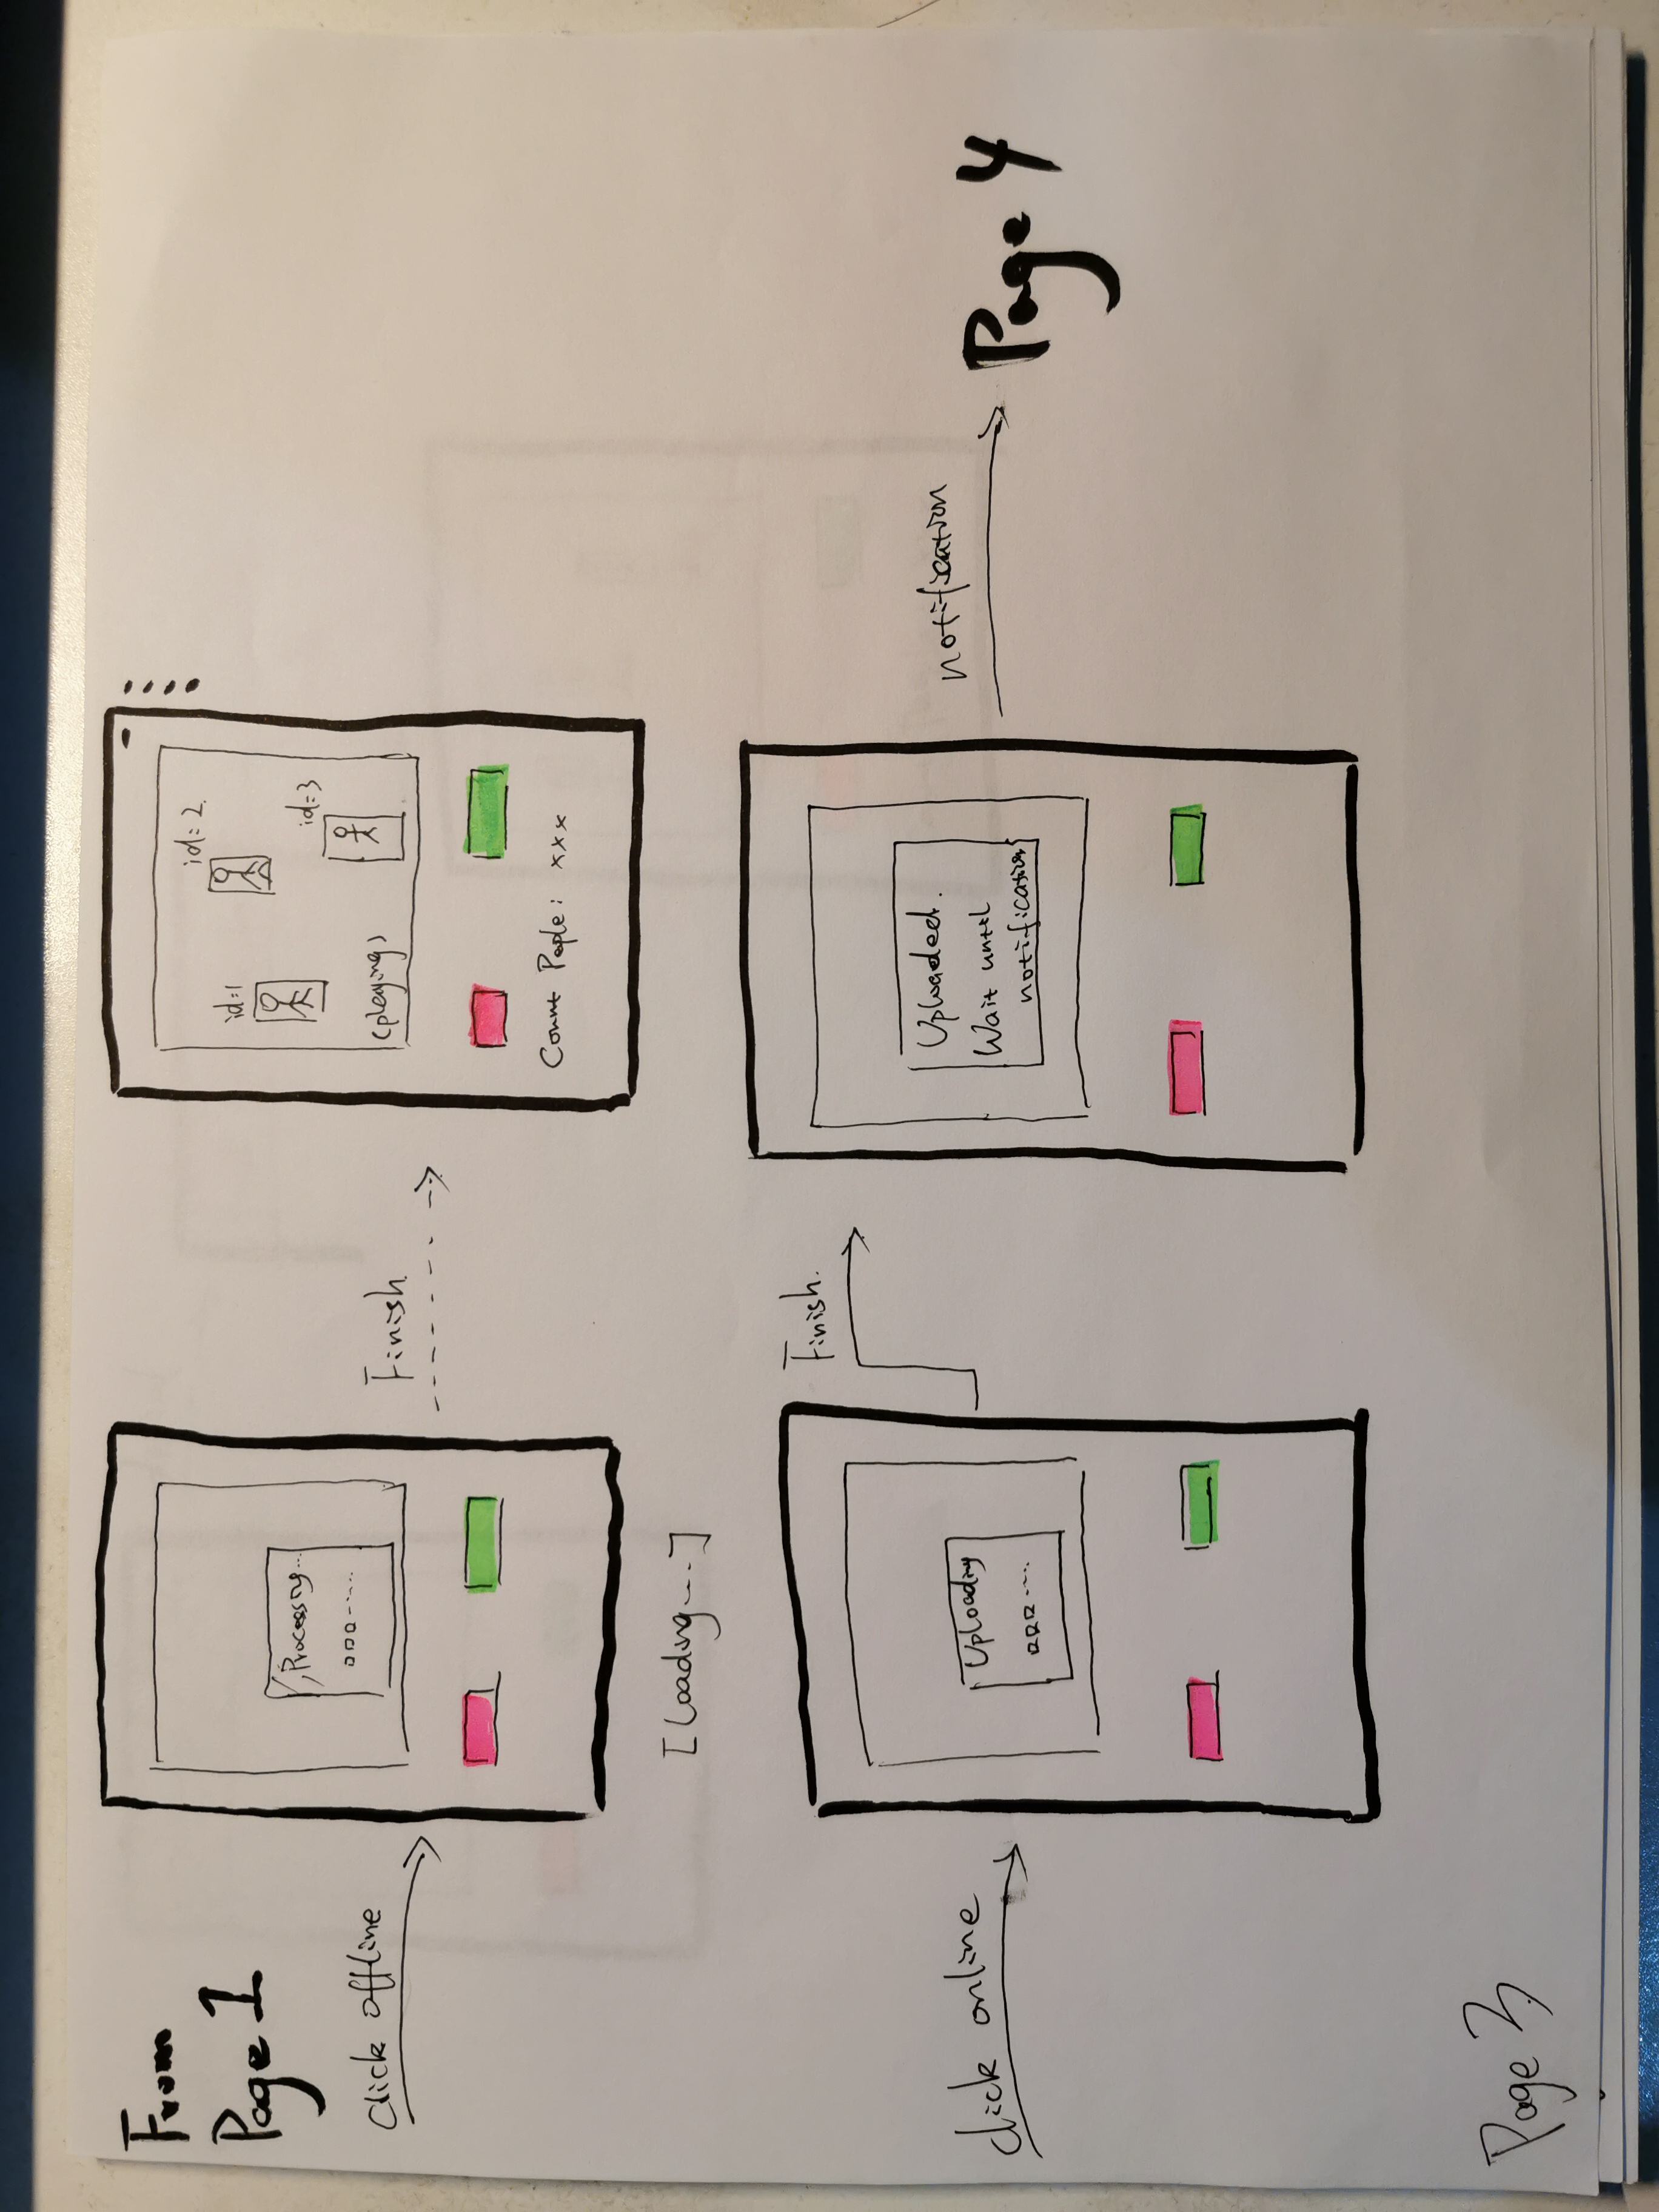 From
Page 1
click offline
Processing...
[Loading...]
Finish.
id=1
id=2.
id=3
(playing)
Count People: xxx
click online
Uploading
Finish.
Uploaded.
Wait until
notification
notification
Page 4
Page 3